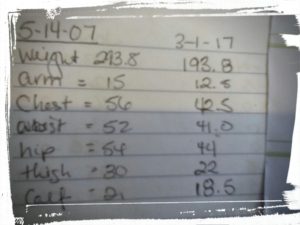 5-14-07 3-1-17
Weight 293.8 193.8
arm = 15 12.5
Chest = 56 42.5
= 52 41.0
hip = 54 44
thigh = 30 22
Calf = 18.5